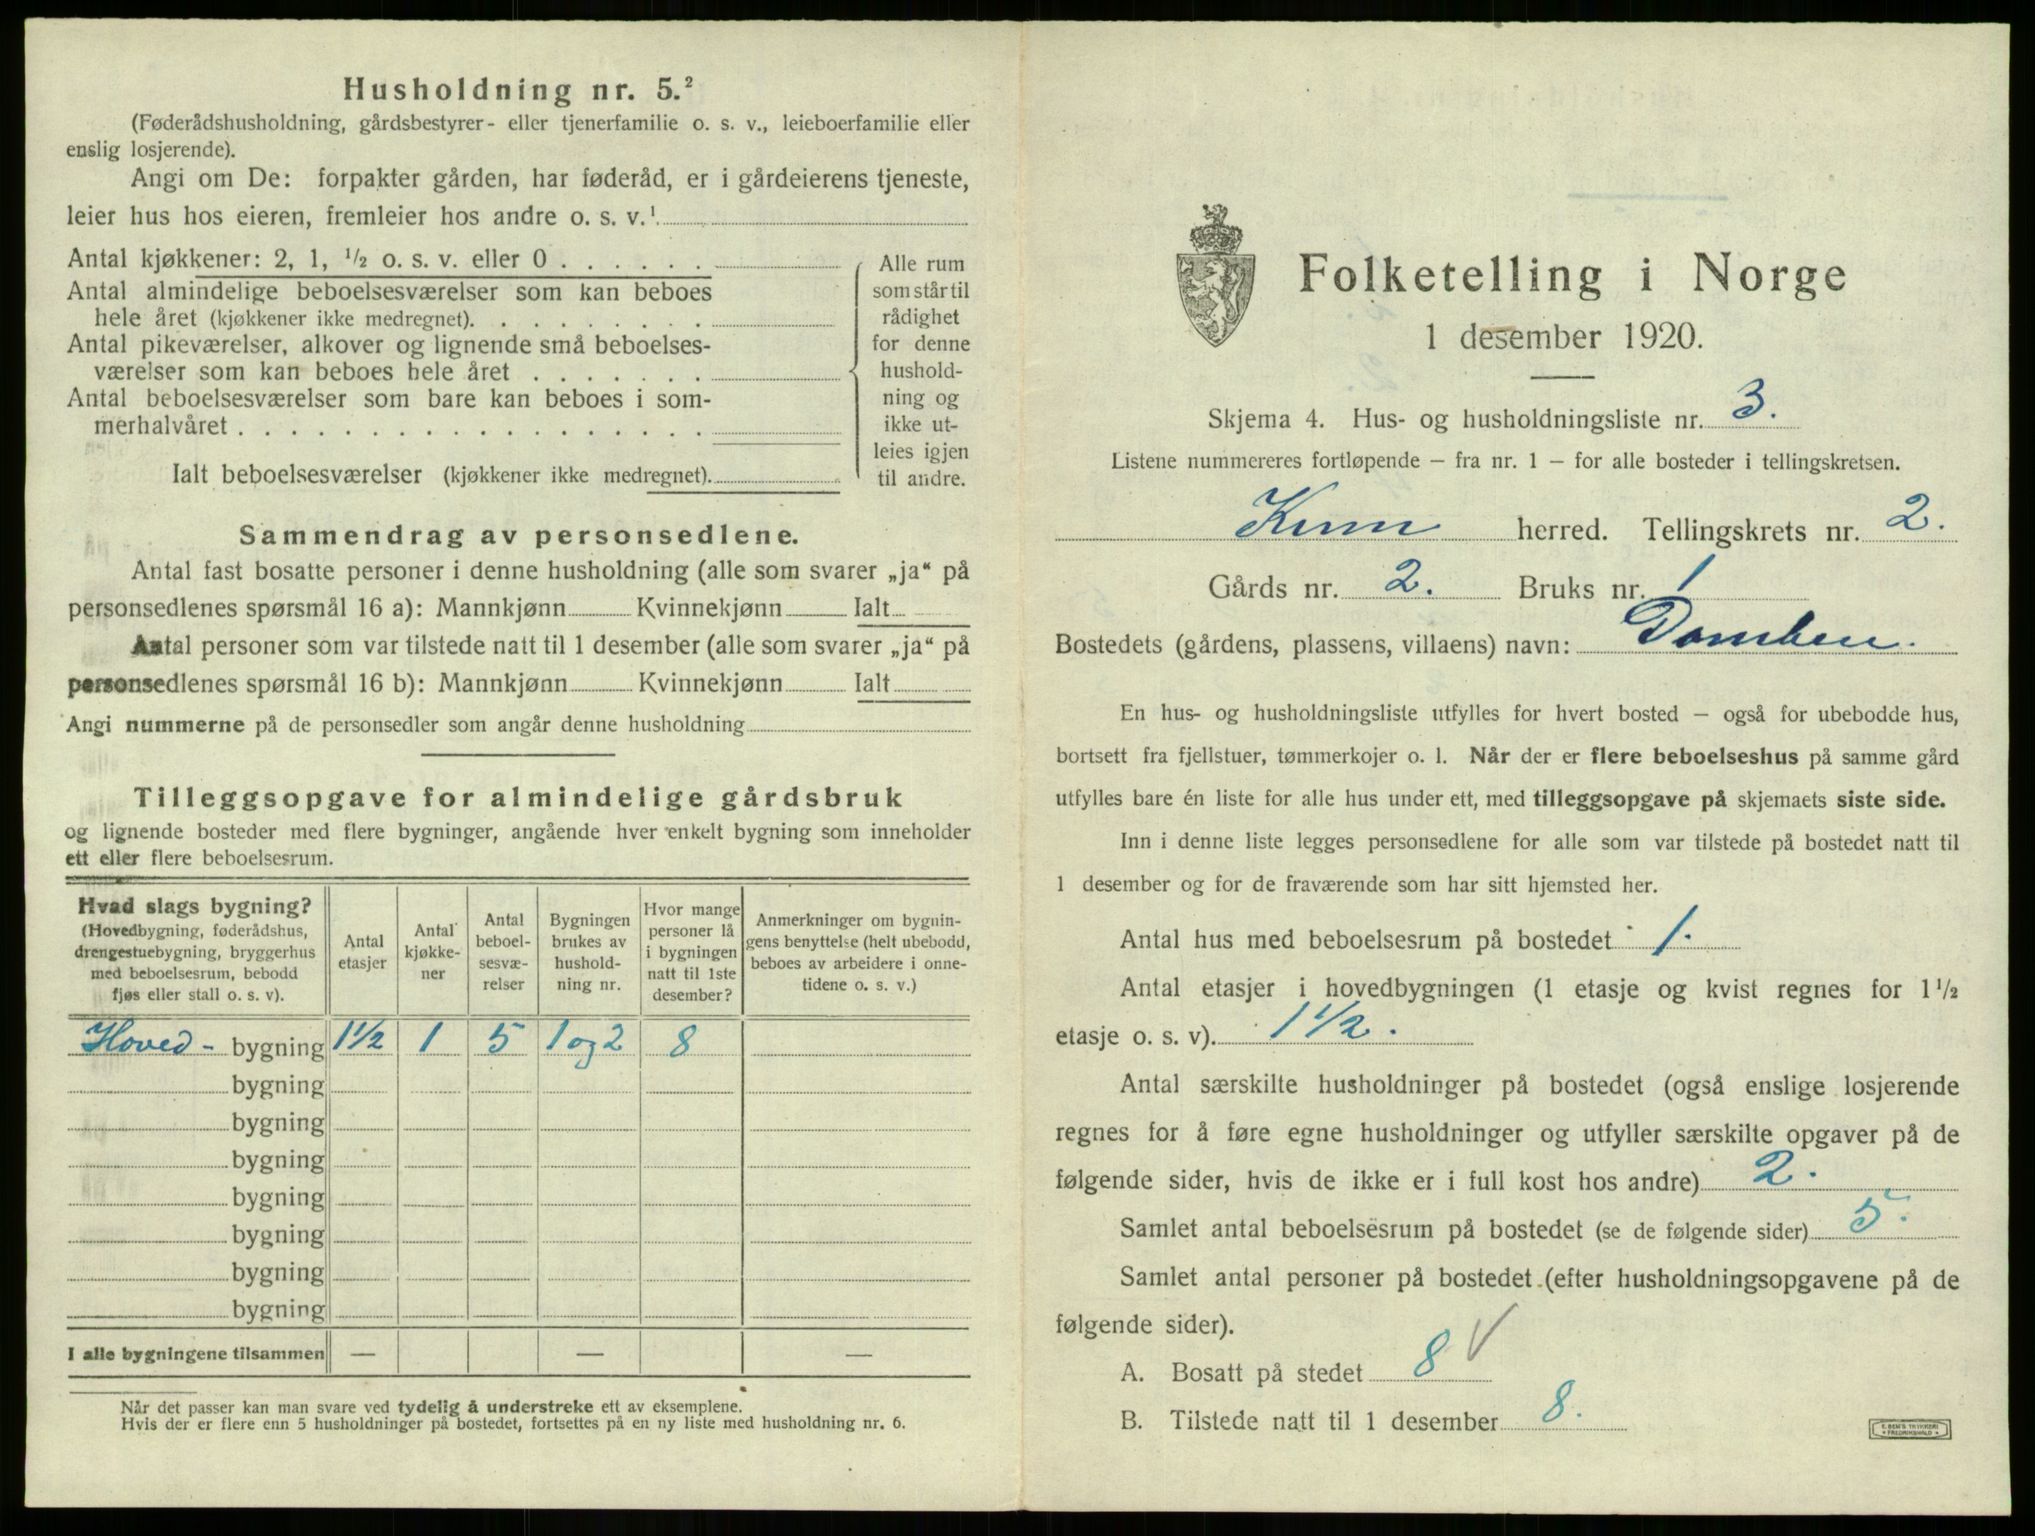 Husholdning nr. 5.²
(Føderådshusholdning, gårdsbestyrer- eller tjenerfamilie o. s. v., leieboerfamilie eller
enslig losjerende).
Angi om De: forpakter gården, har føderåd, er i gårdeierens tjeneste,
leier hus hos eieren, fremleier hos andre o. s. v.¹
Antal kjøkkener: 2, 1, ½ o. s. v. eller 0 . . . . . .
Antal almindelige beboelsesværelser som kan beboes
hele året (kjøkkener ikke medregnet). . . . . . . . .
Antal pikeværelser, alkover og lignende små beboelses-
værelser som kan beboes hele året . . . . . . .
Antal beboelsesværelser som bare kan beboes i som-
merhalvåret . . . . . . . . . . . . . . . . . .
Ialt beboelsesværelser (kjøkkener ikke medregnet).
Alle rum
som står til
rådighet
for denne
hushold-
ning og
ikke ut-
leies igjen
til andre.
Sammendrag av personsedlene.
Antal fast bosatte personer i denne husholdning (alle som svarer „ja“ på
personsedlenes spørsmål 16 a): Mannkjønn Kvinnekjønn Ialt
Antal personer som var tilstede natt til 1 desember (alle som svarer „ja“ på
personsedlenes spørsmål 16 b): Mannkjønn Kvinnekjønn Ialt
Angi nummerne på de personsedler som angår denne husholdning
Tilleggsopgave for almindelige gårdsbruk
og lignende bosteder med flere bygninger, angående hver enkelt bygning som inneholder
ett eller flere beboelsesrum.
Hvad slags bygning?
(Hovedbygning, føderådshus,
drengestuebygning, bryggerhus
med beboelsesrum, bebodd
fjøs eller stall o. s. v).
Antal
etasjer
Antal
kjøkke-
ner
Antal
beboel-
sesvæ-
relser
Bygningen
brukes av
hushold-
ning nr.
Hvor mange
personer lå
i bygningen
natt til 1ste
desember?
Anmerkninger om bygnin-
gens benyttelse (helt ubebodd,
beboes av arbeidere i onne-
tidene o. s. v.)
Hoved- bygning 1½ 1 5 1 og 2 8
bygning
bygning
bygning
bygning
bygning
bygning
bygning
I alle bygningene tilsammen — — —
Når det passer kan man svare ved tydelig å understreke ett av eksemplene.
Hvis der er flere enn 5 husholdninger på bostedet, fortsettes på en ny liste med husholdning nr. 6.
Folketelling i Norge
1 desember 1920.
Skjema 4. Hus- og husholdningsliste nr. 3.
Listene nummereres fortløpende – fra nr. 1 – for alle bosteder i tellingskretsen.
Kinn herred. Tellingskrets nr. 2.
Gårds nr. 2. Bruks nr. 1
Bostedets (gårdens, plassens, villaens) navn: Domben.
En hus- og husholdningsliste utfylles for hvert bosted – også for ubebodde hus,
bortsett fra fjellstuer, tømmerkojer o. l. Når der er flere beboelseshus på samme gård
utfylles bare én liste for alle hus under ett, med tilleggsopgave på skjemaets siste side.
Inn i denne liste legges personsedlene for alle som var tilstede på bostedet natt til
1 desember og for de fraværende som har sitt hjemsted her.
Antal hus med beboelsesrum på bostedet 1.
Antal etasjer i hovedbygningen (1 etasje og kvist regnes for 1½
etasje o. s. v). 1 1/2.
Antal særskilte husholdninger på bostedet (også enslige losjerende
regnes for å føre egne husholdninger og utfyller særskilte opgaver på de
følgende sider, hvis de ikke er i full kost hos andre) 2.
Samlet antal beboelsesrum på bostedet (se de følgende sider) 5.
Samlet antal personer på bostedet (efter husholdningsopgavene på de
følgende sider).
A. Bosatt på stedet 8 V
B. Tilstede natt til 1 desember 8.
E. SEM'S TRYKKERI
FREDRIKSHALD